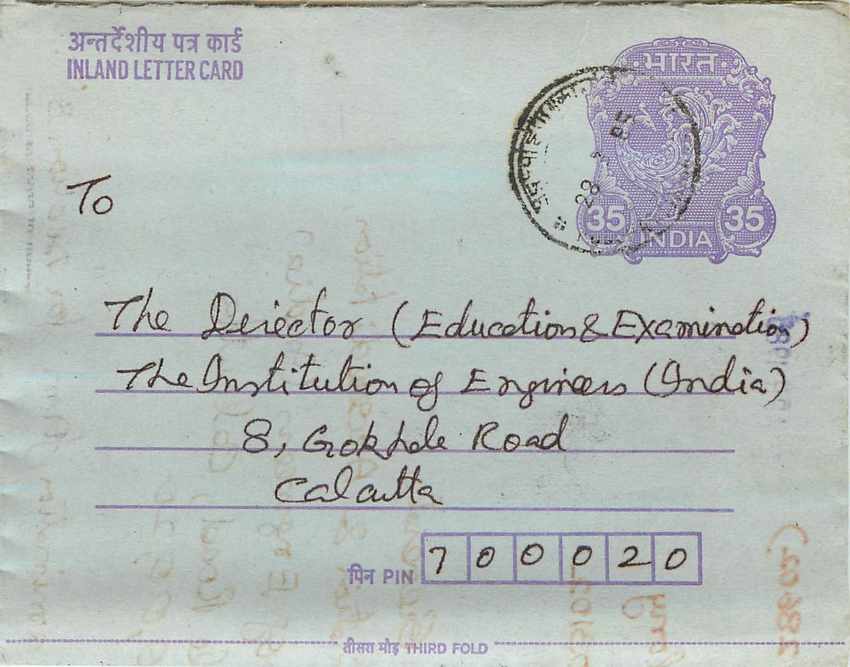 अन्तर्देशीय पत्र कार्ड
INLAND LETTER CARD
भारत
35 35
INDIA
To
The Director (Education & Examination)
The Institution of Engineers (India)
8, Gokhale Road
Calcutta
पिन PIN 700020
तीसरा मोड़ THIRD FOLD